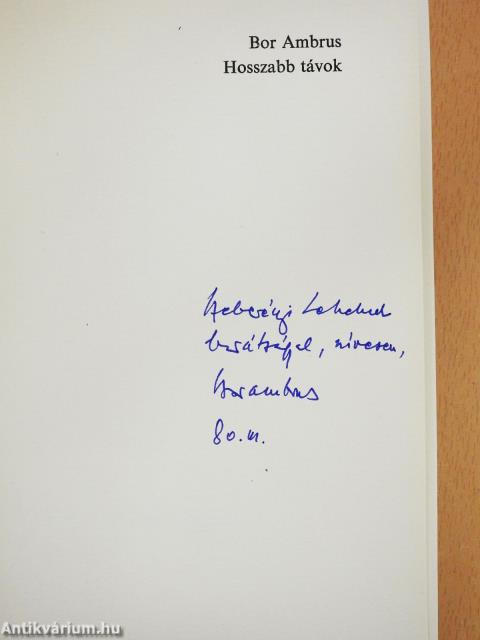 Bor Ambrus
Hosszabb távok
Szeberényi Lehelnek
barátsággal, szívesen,
Bor Ambrus
80. III.
Antikvárium.hu